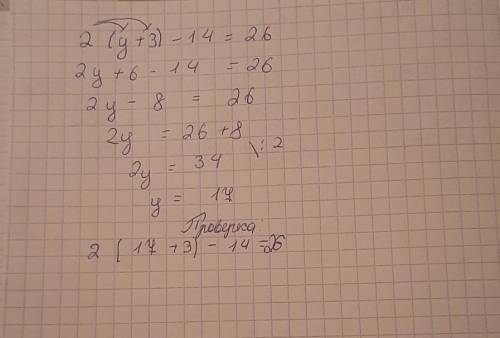 2 (y+3) - 14 = 26
2y + 6 - 14 = 26
2y - 8 = 26
2y = 26 + 8
2y = 34 \: 2
y = 17
Проверка
2 [ 17 + 3) - 14 = 26